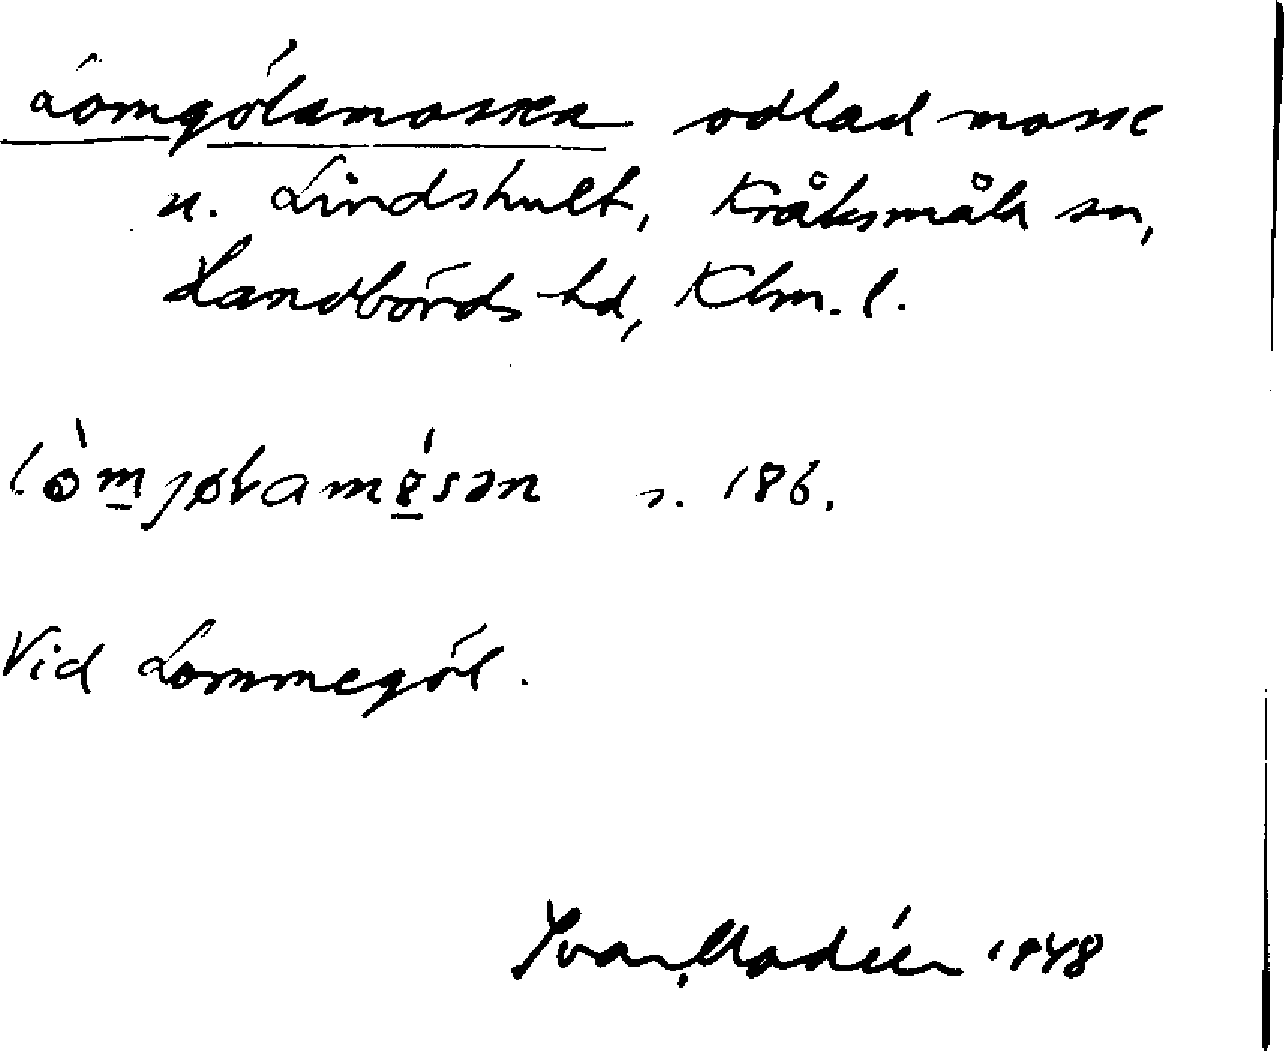 Lomgölamossen odlad mosse
u. Lindshult, Kråksmåla sn,
Handbörds hd, Klm. l.
lòm̲jøɫamɵ̲́sən s. 186.
Vid Lommegöl.
Ivar Modéer 1948